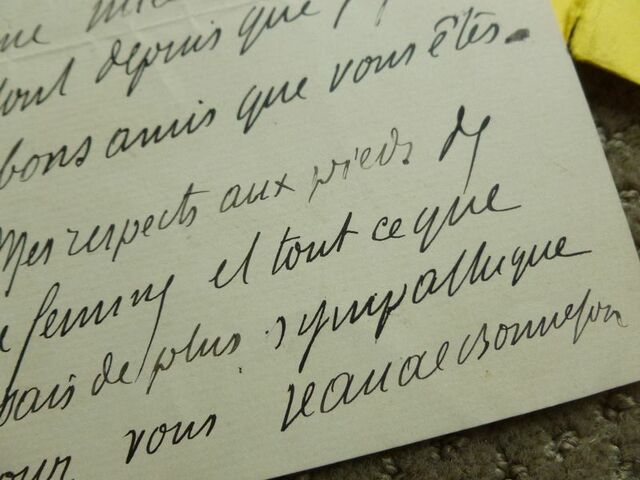 depuis que
bons amis que vous êtes.
Mes respects aux pieds de
femme et tout ce que
sais de plus sympathique
pour vous Jean de Bonnefon